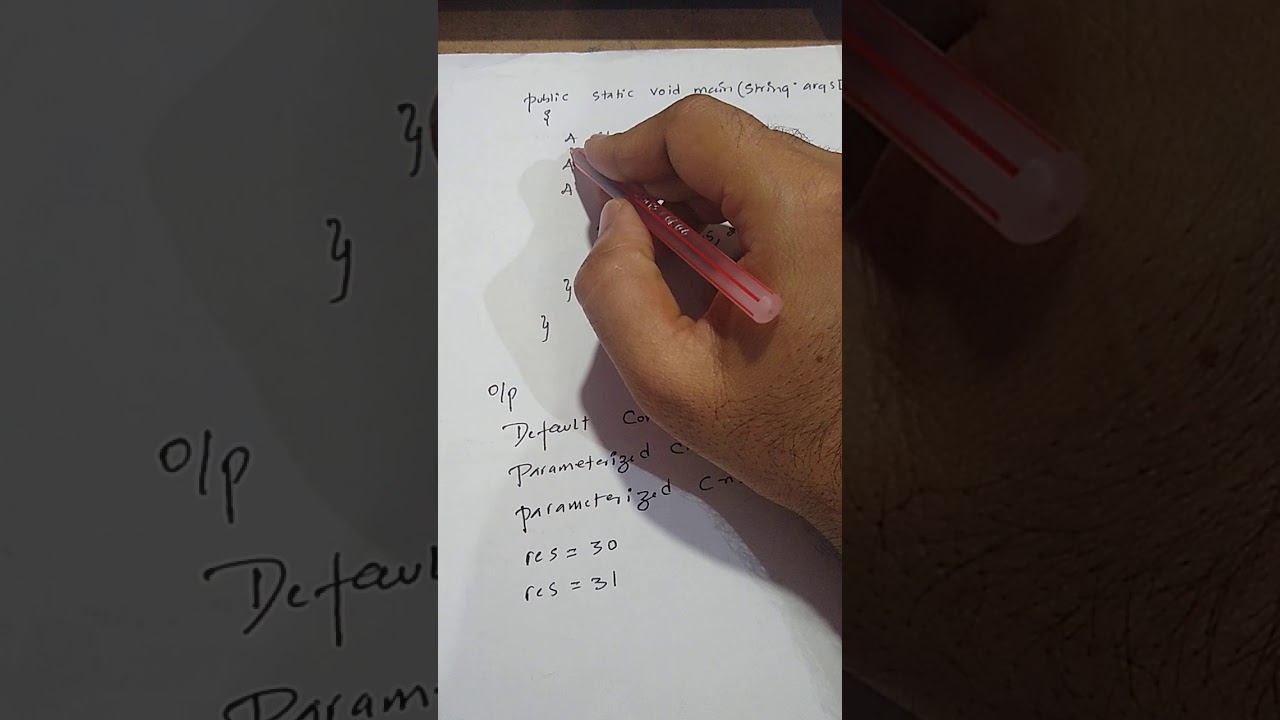 public static void main(String args[
{
A
A
A
}
}
O/p
Default Con
Parameterized C
parameterized Cn
res = 30
res = 31